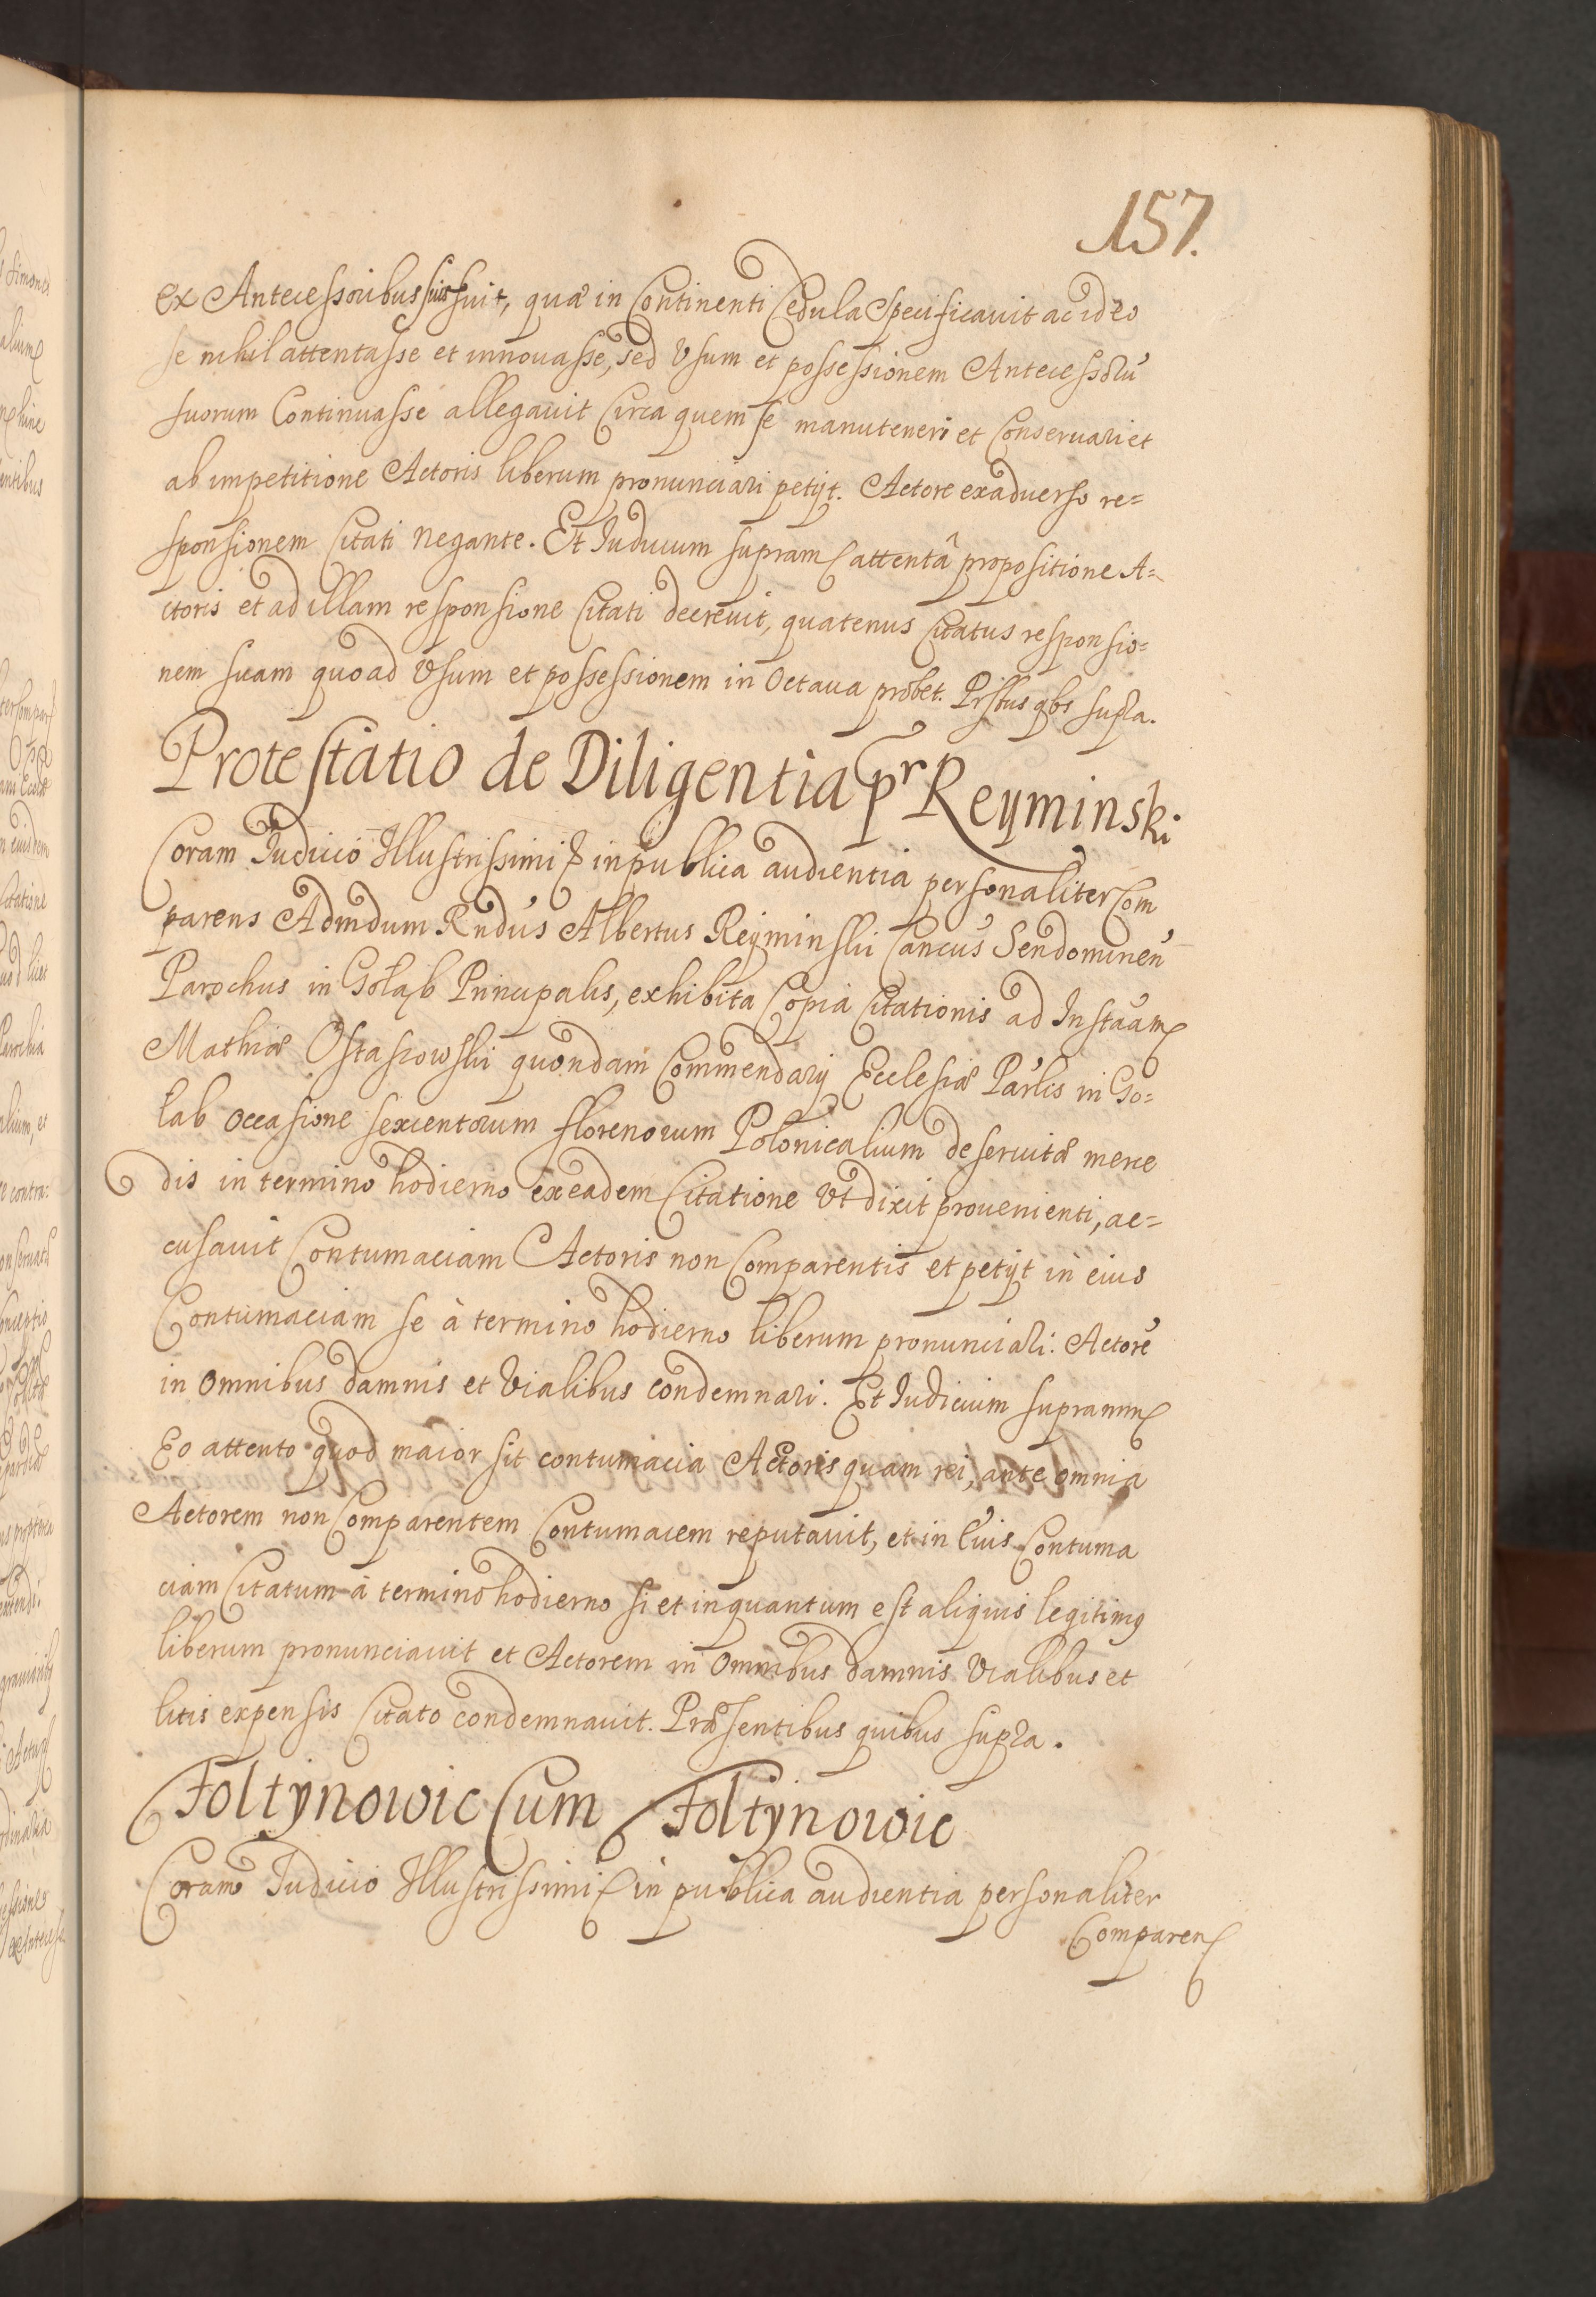 157.
ex Antecessoribus suis fuit, quæ in Continenti Cedula Specificavit ac ideo
se nihil attentasse et innouasse, sed Vsum et possessionem Antecessorũ
suorum Continuasse allegauit Circa quem se manuteneri et Conseruari et
ab impetitione Actoris liberum pronunciari petijt. Actore exaduerso re=
sponsionem Citati negante. Et Iudicium supram attentâ propositione A=
ctoris et ad illam responsione Citati decreuit, quatenus Citatus responsio=
nem suam quoad Vsum et possessionem in Octaua probet. Pñtbus qbs supra.
Protestatio de Diligentia pr Reyminski
Coram Iudicio Illustrissimi in publica audientia personaliter Com
parens Admdum Rndus Albertus Reyminski Cancus Sendominen
Parochus in Gołąb Principalis, exhibita Copia Citationis ad Instaam
Mathiæ Ostaszowski quondam Commendarij Ecclesiæ Parlis in Go=
lab occasione sexcentorum florenorum Polonicalium deseruitæ merce
dis in termino hodierno ex eadem Citatione Vt dixit prouenienti, ac=
cusauit Contumaciam Actoris non Comparentis et petijt in eius
Contumaciam se à termino hodierno liberum pronunciari: Actorẽ
in Omnibus damnis et Vialibus condemnari. Et Iudicium supramm
Eo attento quod maior sit contumacia Actoris quam rei, ante omnia
Actorem non Comparentem Contumacem reputauit, et in Euis Contuma
ciam Citatum à termino hodierno si et inquantum est aliquis legitimq
liberum pronunciauit et Actorem in Omnibus damnis Vialibus et
litis expensis Citato condemnauit. Præsentibus quibus supra.
Foltynowic Cum Foltynowic
Coram Iudicio Illustrissimi in publica audientia personaliter
Comparen